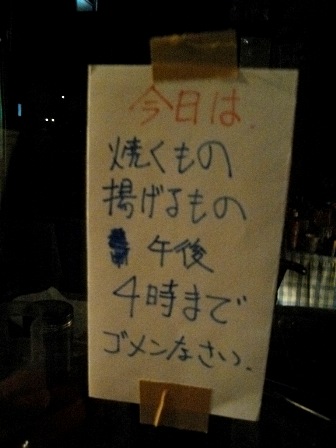 今日は
焼くもの
揚げるもの
午後
4時まで
ゴメンなさい、